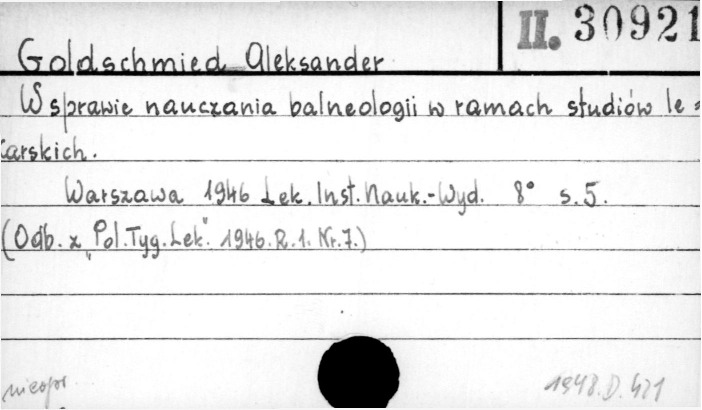 II. 30921
Goldschmied Aleksander
W sprawie nauczania balneologii w ramach studiów le=
karskich.
Warszawa 1946 Lek. Inst. Nauk.-Wyd. 8° s. 5.
(Odb. z „Pol. Tyg. Lek." 1946. R. 1. Nr. 7.)
nieopr.
1948.D.421